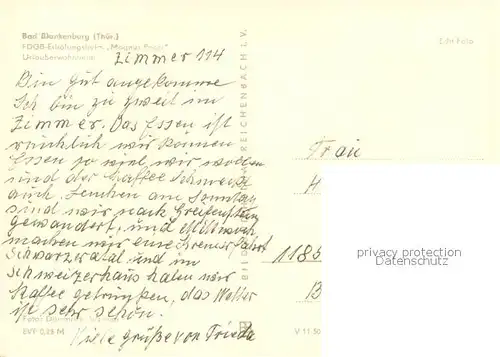 Bad Blankenburg (Thür.)
FDGB-Erholungsheim „Magnus Poser"
Urlauberwohnheim
Echt Foto
Zimmer 114
Bin gut angekomme
Ich bin zu zweit im
Zimmer. Das Essen ist
reichlich wir können
Essen so viel wir wollen
und der Kaffee schmeckt
auch. am Sonntag
sind wir nach Greifenstein
gewandert, und Mittwoch
machen wir eine Fahrt
Schwarzatal und im
Schweizerhaus haben wir
Kaffee getrunken, das Wetter
ist sehr schön.
Viele grüße von Frieda
Foto:
EVP 0,25 M
BILD REICHENBACH I. V.
V 11 50
Frau
H
1185
B
privacy protection
www.ansichtskartenversand.com